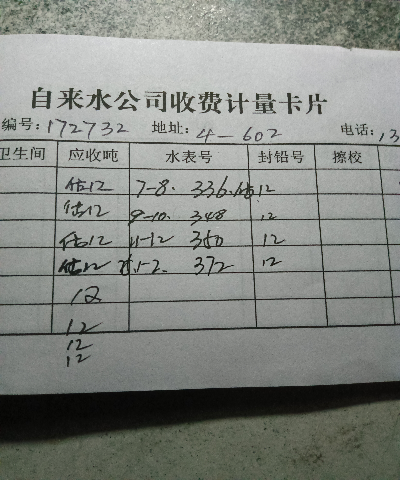 自来水公司收费计量卡片
编号:172732 地址: 4-602 电话:13
卫生间 应收吨 水表号 封铅号 擦校
估12 7-8. 336. 12
估12 9-10. 348 12
估12 11-12 360 12
估12 1-2. 372 12
12
12
12
12